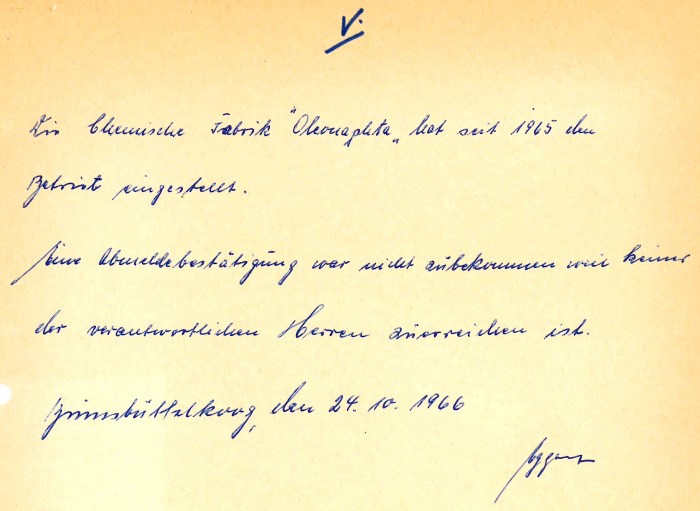 V.
Die Chemische Fabrik "Oleonaphta„ hat seit 1965 den
Betrieb eingestellt.
Eine Abmeldebestätigung war nicht zubekommen weil keiner
der verantwortlichen Herren zuerreichen ist.
den 24. 10. 1966